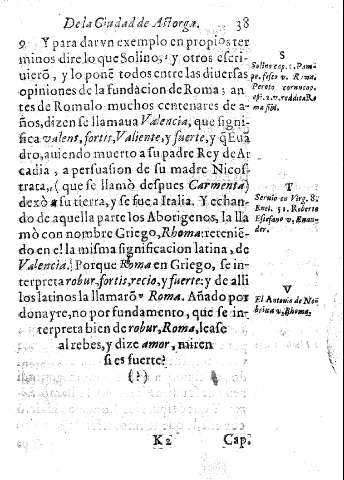 De la Ciudad de Astorga. 38
9 Y para dar vn exemplo en propios ter
minos dire lo que Solino, y otros escri-
uierõ, y lo ponẽ todos entre las diuersas
opiniones de la fundacion de Roma; an
tes de Romulo muchos centenares de a-
ños, dizen se llamaua Valencia, que signi
fica valens, fortis, Valiente, y fuerte, y q̃ Eua
dro, auiendo muerto a su padre Rey de Ar
cadia, a persuasion de su madre Nicos
trata, (que se llamò despues Carmenta)
dexò a su tierra, y se fue a Italia. Y echan-
do de aquella parte los Aborigenos, la lla
mò con nombre Griego, Rhoma: reteniẽ-
do en el la misma significacion latina, de
Valencia. Porque Roma en Griego, se in-
terpreta robur, fortis, recio, y fuerte: y de alli
los latinos la llamarõ Roma. Añado por
donayre, no por fundamento, que se in-
terpreta bien de robur, Roma, lease
al rebes, y dize amor, miren
si es fuerte?
(?)
K2 Cap.
S
Solino cap. 1. Pom-
pe. festo v. Roma.
Peroto cornucop.
Roma sibi.
T
Seruio en Virg. 8.
Enei. 51. Roberto
Estefano v. Euan-
der.
V
El Antonio de Ne-
brixa v. Rhoma.